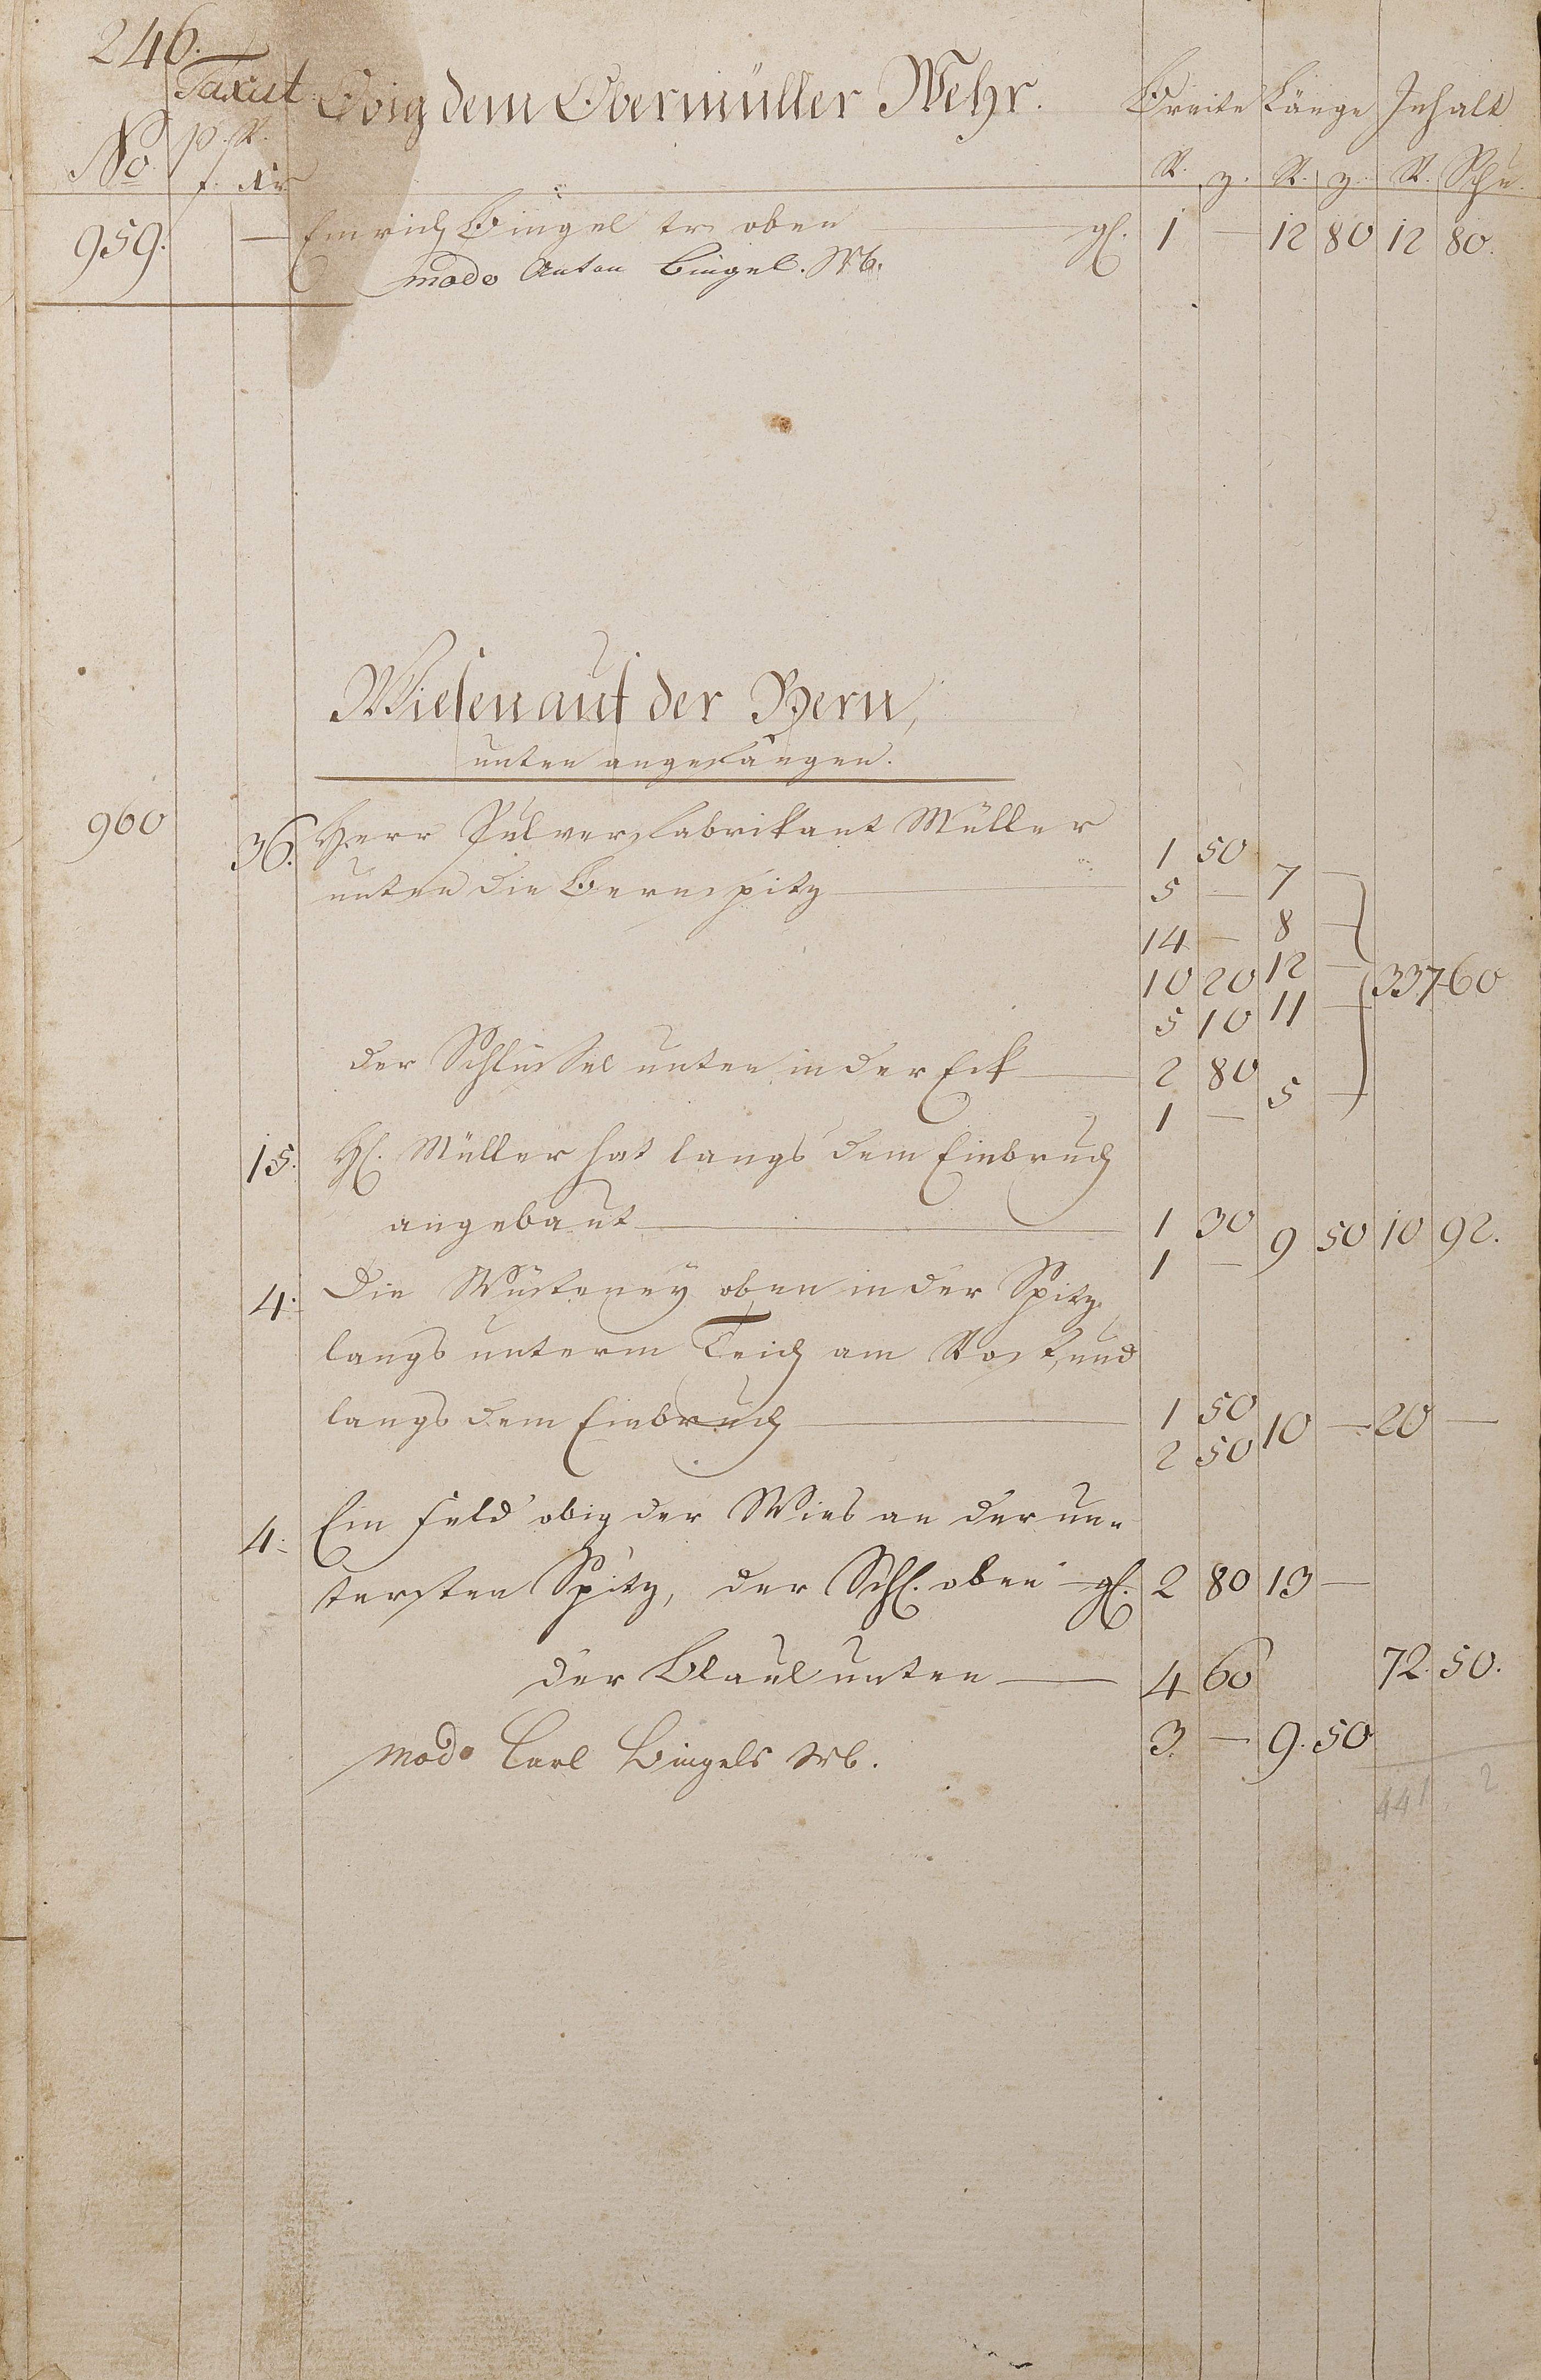 246.
Taxat. Obig dem Obermüller Wehr. Breite Länge Inhalt
No p. R. f. Xr R. z. R. z. R. Schu.
959. — Emrich Bingel tr. oben gl. 1 — 12 80 12 80.
modo Anton Bingel. Wb.
Wiesen auf der Bern,
unten angefangen.
960 36. Herr Pulverfabrikant Müller 1 50
unten die Bernspitz 5 — 7 —
14 — 8 —
10 20 12 — 337 60
5 10 11 —
der Schlüssel unten in der Eck 2 80 5 —
1 —
15. Hl. Müller hat langs dem Einbruch
angebaut 1 30 9 50 10 92.
1 —
4. Die Wüsteney oben in der Spitz
langs unterm Teich am Rost, und
langs dem Einbruch 1 50 10 — 20 —
2 50
4. Ein Feld obig der Wies an der un-
tersten Spitz, der Schl. oben gl. 2 80 13 —
der Blaul unten 4 60 72. 50.
modo Carl Bingels Wb. 3. — 9. 50
441 2